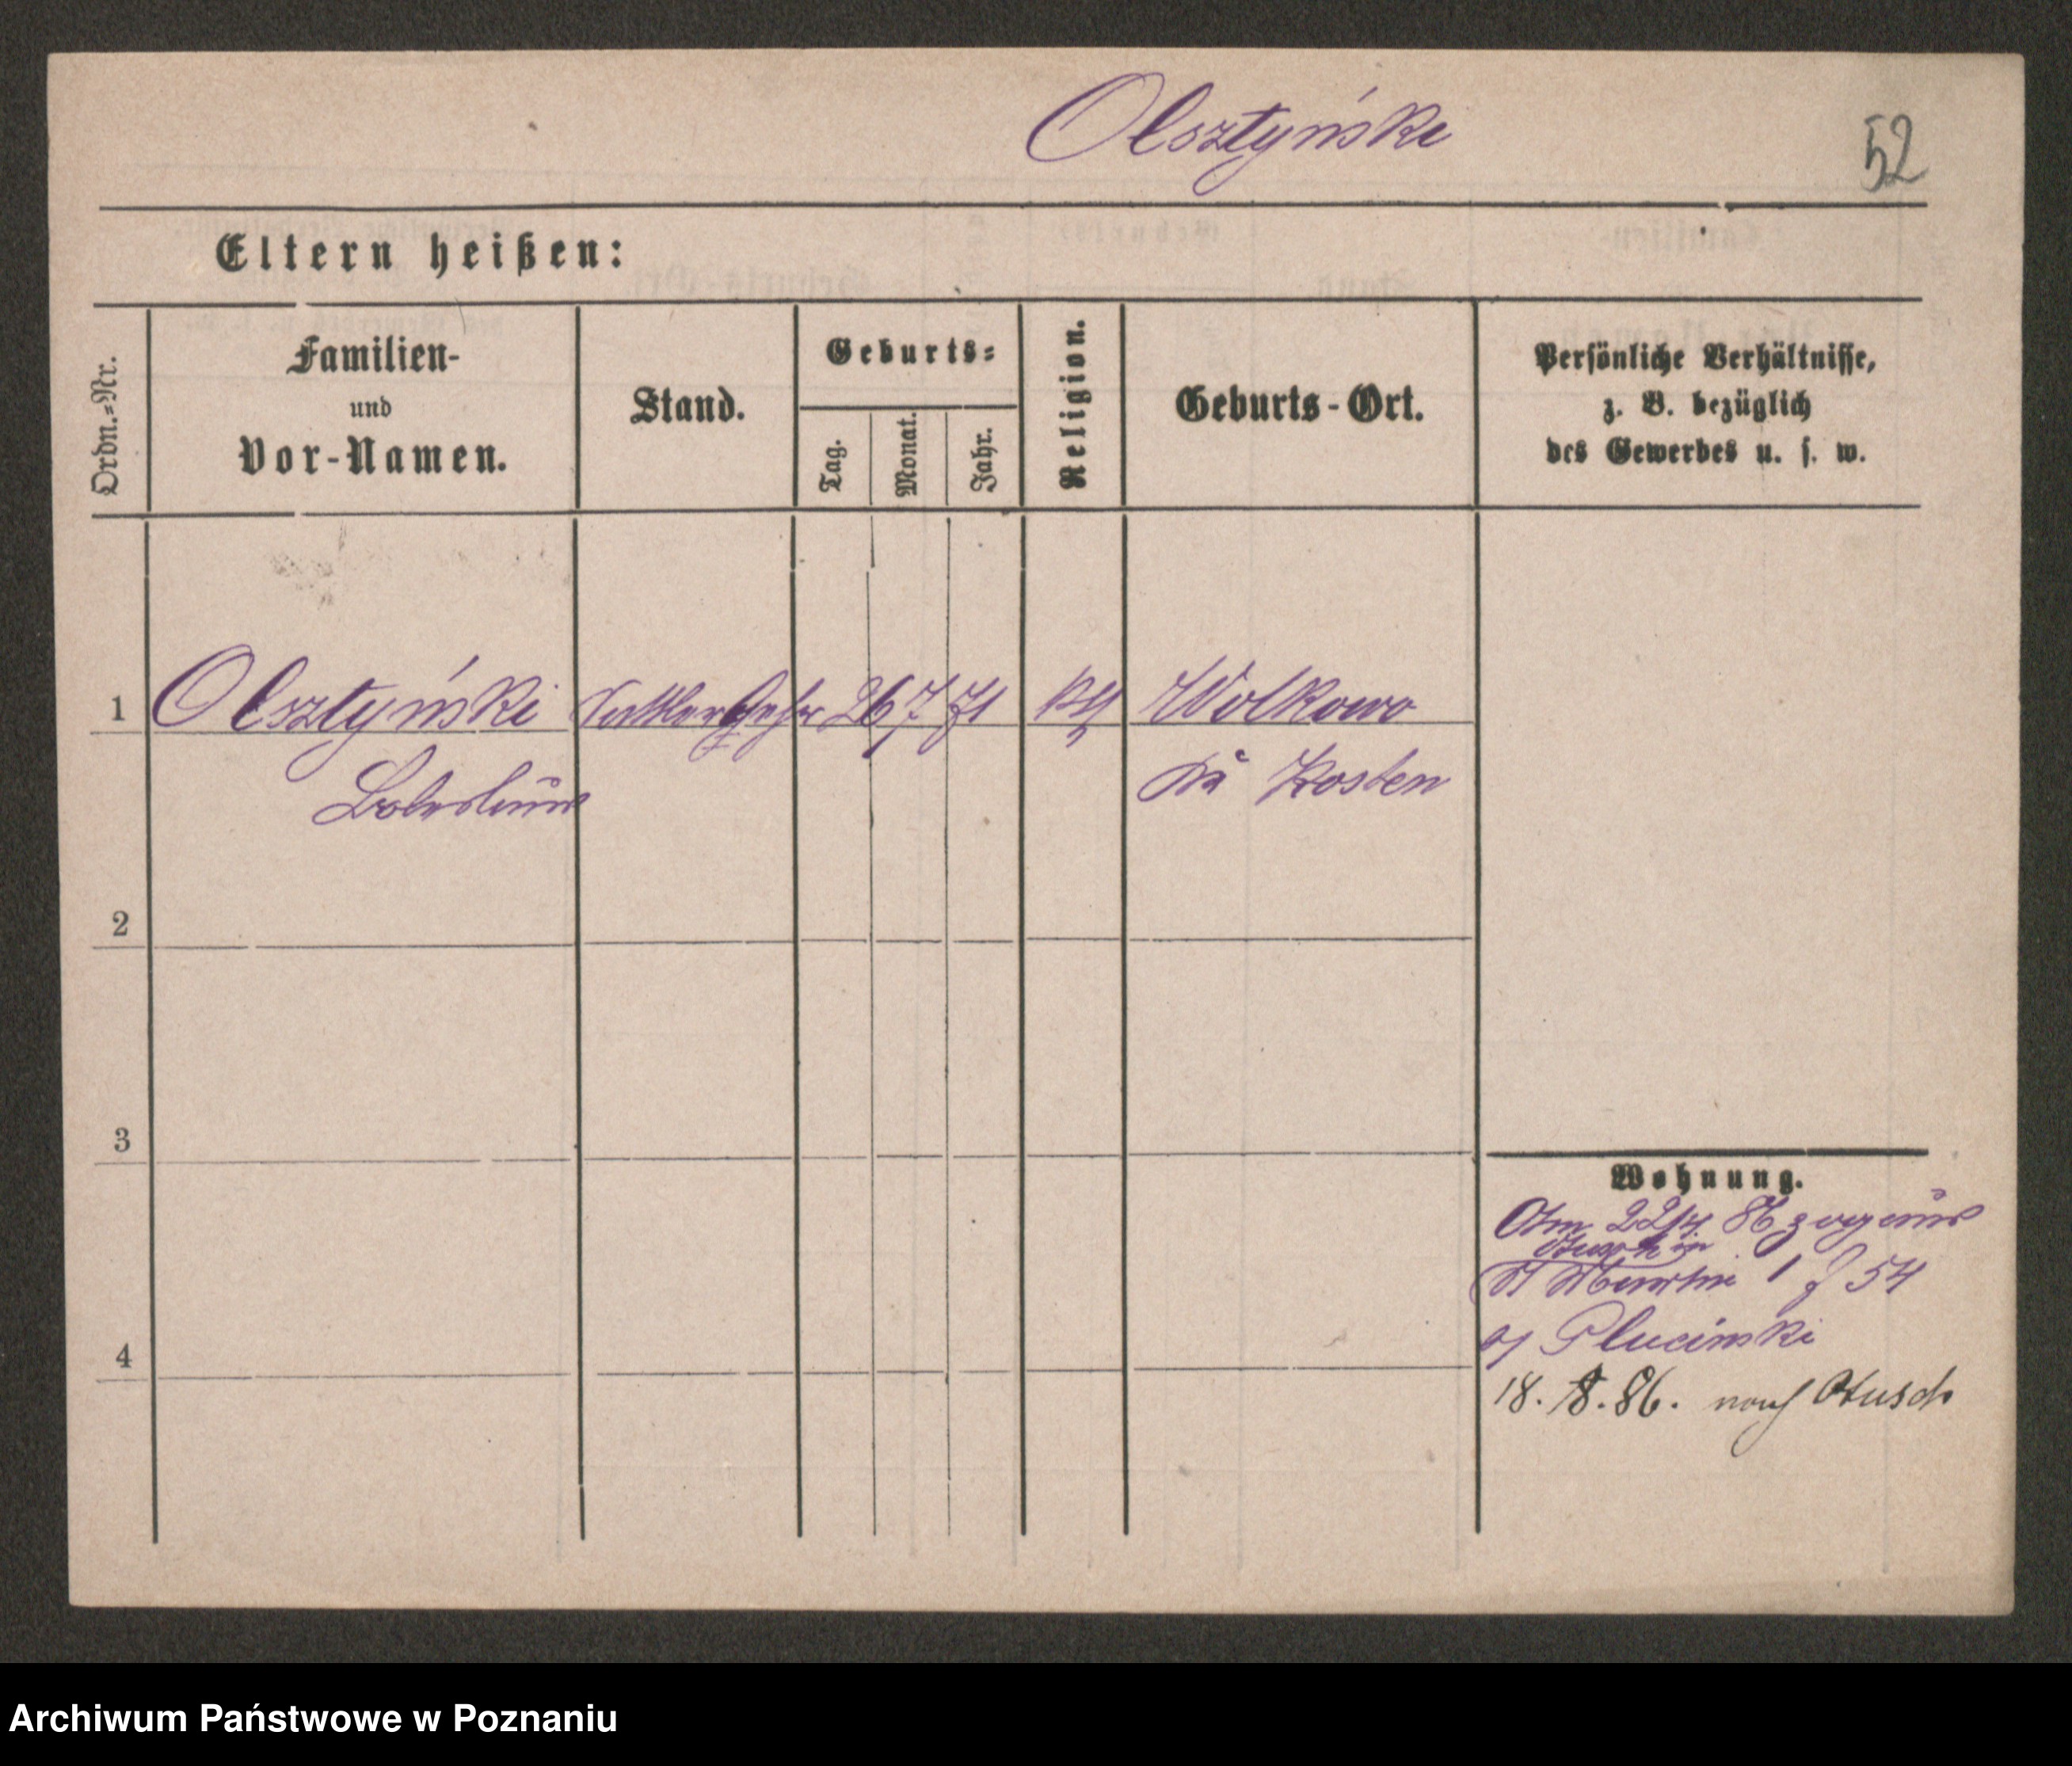 Olsztyński
52
Eltern heißen:
Ordn.=Nr.
Familien-
und
Vor-Namen.
Stand.
Geburts=
Tag.
Monat.
Jahr.
Religion.
Geburts-Ort.
Persönliche Verhältnisse,
z. B. bezüglich
des Gewerbes u. s. w.
1 Olsztyński 26 7 71 kth Wolkowo
Boleslaus
Kr Kosten
2
3
4
Wohnung.
Am 22/4 86 zog aus
St Martin 1 f 54
b/ Plucinski
18. 8. 86. nach Otusch
Archiwum Państwowe w Poznaniu